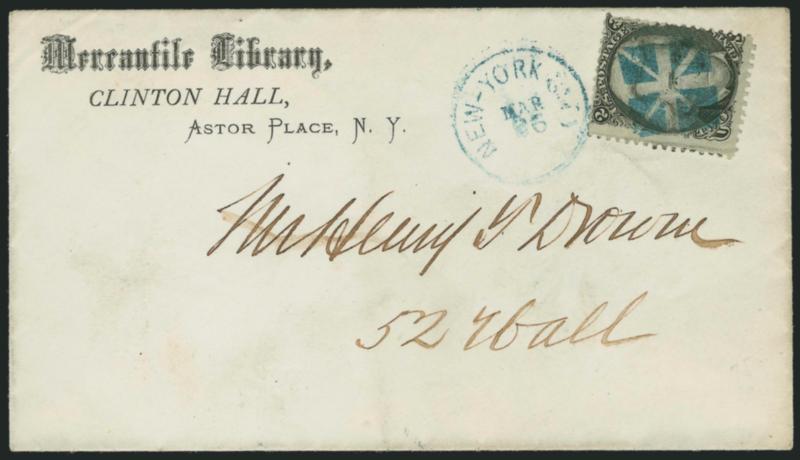 Mercantile Library,
CLINTON HALL,
ASTOR PLACE, N. Y.
NEW-YORK
MAR
26
Mr Henry T Drowne
52 Wall